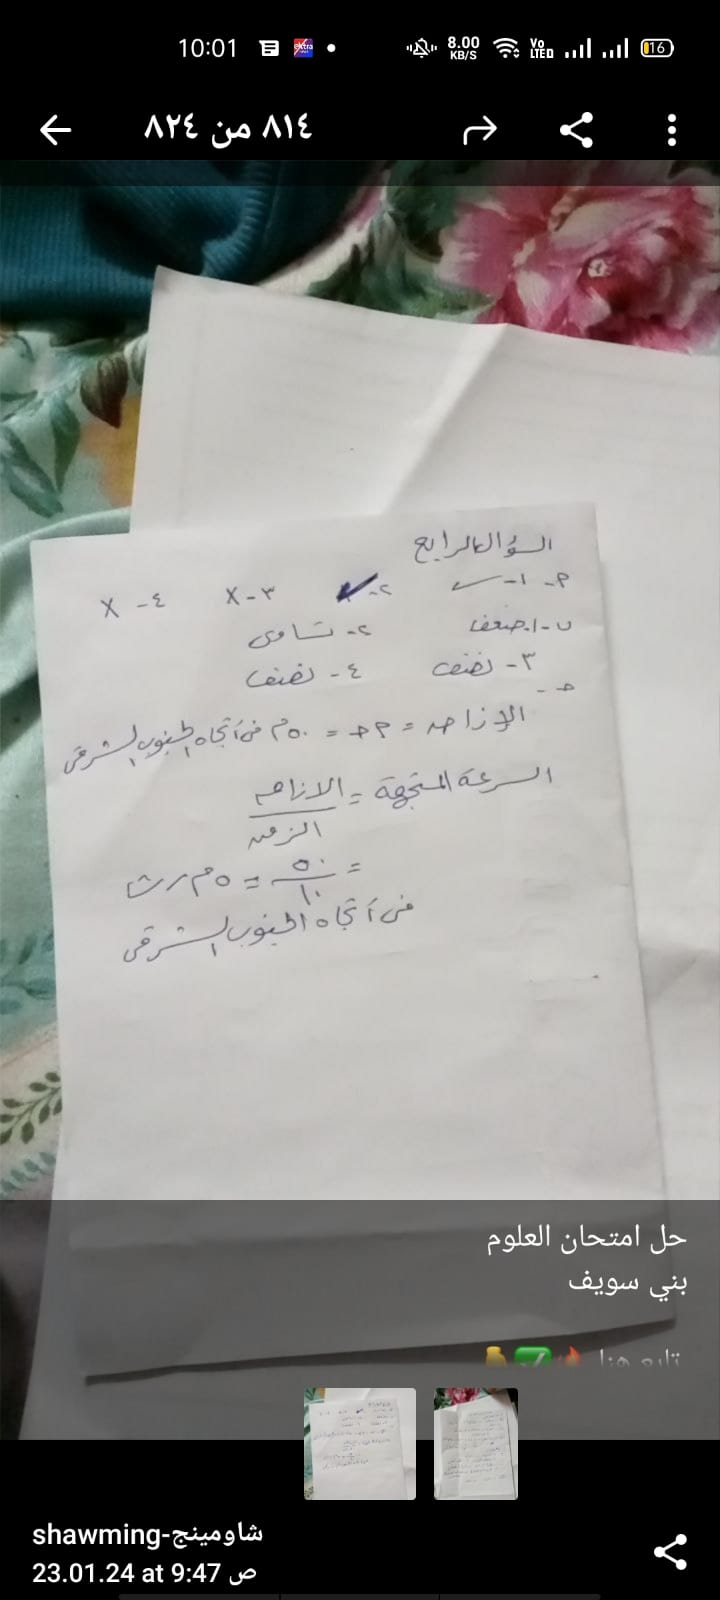 10:01
8.00 KB/S
Vo LTE
16
٨١٤ من ٨٢٤
السؤال الرابع
٢- ١- ✓ ٢- ✓ ٣- X ٤- X
ب- ١- ضعف ٢- تساوى
٣- نصف ٤- نصف
ح -
الإزاحه = ٢ح = ٥٠م فى اتجاه الجنوب الشرقى
السرعة المتجهة = الازاحه
الزمن
= ٥٠ = ٥م/ث
١٠
فى اتجاه الجنوب الشرقى
حل امتحان العلوم
بني سويف
تابع هنا
shawming-شاومينج
23.01.24 at 9:47 ص